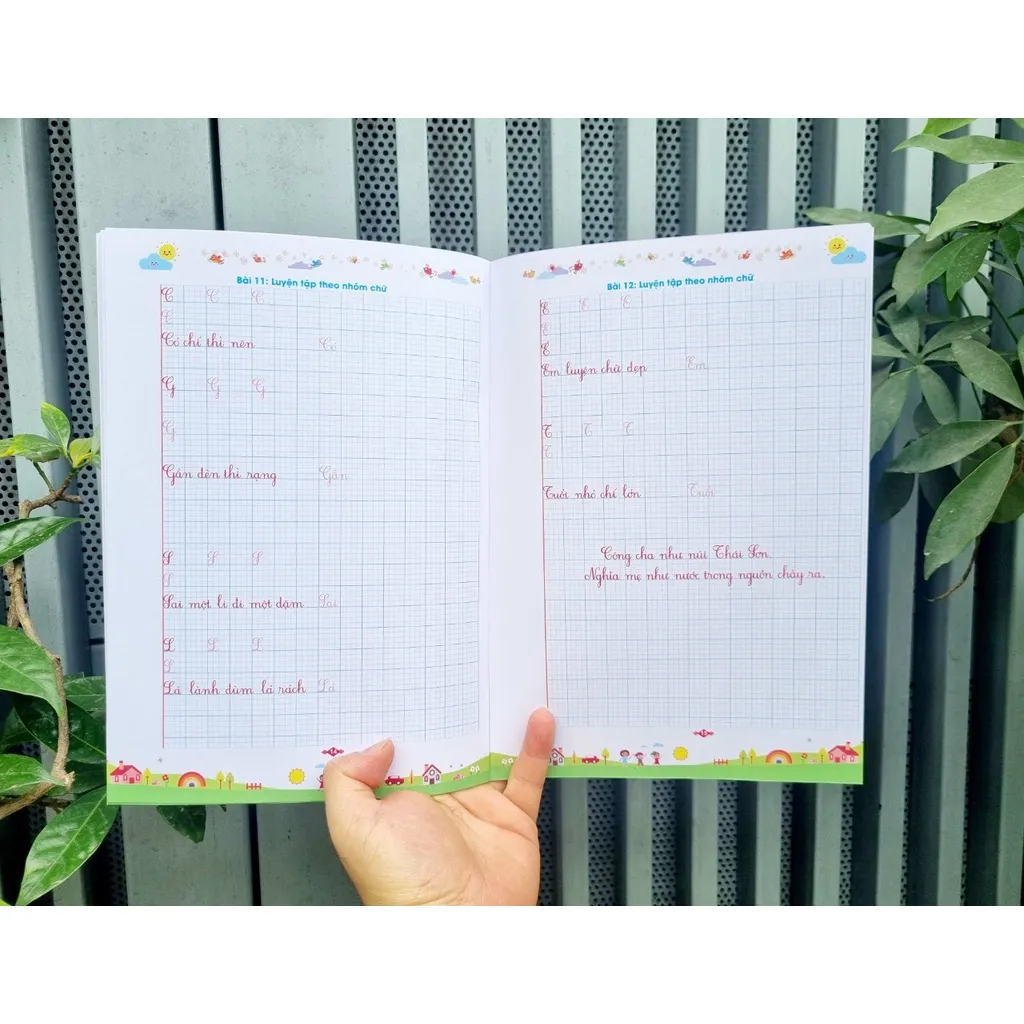 Bài 11: Luyện tập theo nhóm chữ
C C C
C
Có chí thì nên Có
G G G
G
Gần đèn thì rạng Gần
S S S
S
Sai một li đi một dặm Sai
L L L
L
Lá lành đùm lá rách Lá
14
Bài 12: Luyện tập theo nhóm chữ
E E E
E
E
Em luyện chữ đẹp Em
T T T
T
Tuổi nhỏ chí lớn Tuổi
Công cha như núi Thái Sơn.
Nghĩa mẹ như nước trong nguồn chảy ra.
15